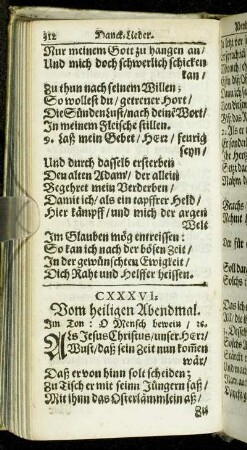 312 Danck-Lieder.
Nur meinem Gott zu hangen an/
Und mich doch schwerlich schicken
kan/
Zu thun nach seinem Willen;
So wollest du/ getreuer Hort/
Die Sünden Lust/ nach deine Wort/
In meinem Fleische stillen.
9. Laß mein Gebet/ HErr/ feurig
seyn/
Und durch dasselb ersterben
Den alten Adam/ der allein
Begehret mein Verderben/
Damit ich/ als ein tapffrer Held/
Hier kämpff/ und mich der argen
Welt
Im Glauben mög entreissen:
So kan ich nach der bösen Zeit/
In der gewünschten Ewigkeit/
Dich Raht und Helffer heissen.
CXXXVI.
Vom heiligen Abendmal.
Im Ton: O Mensch bewein/ ꝛc.
Als Jesus Christus/ unser HErr/
Wust/ daß sein Zeit nun kom̃en
wär/
Daß er von hinn solt scheiden;
Zu Tisch er mit seinn Jüngern saß/
Mit ihnn das Osterlämmlein aß/
Zu